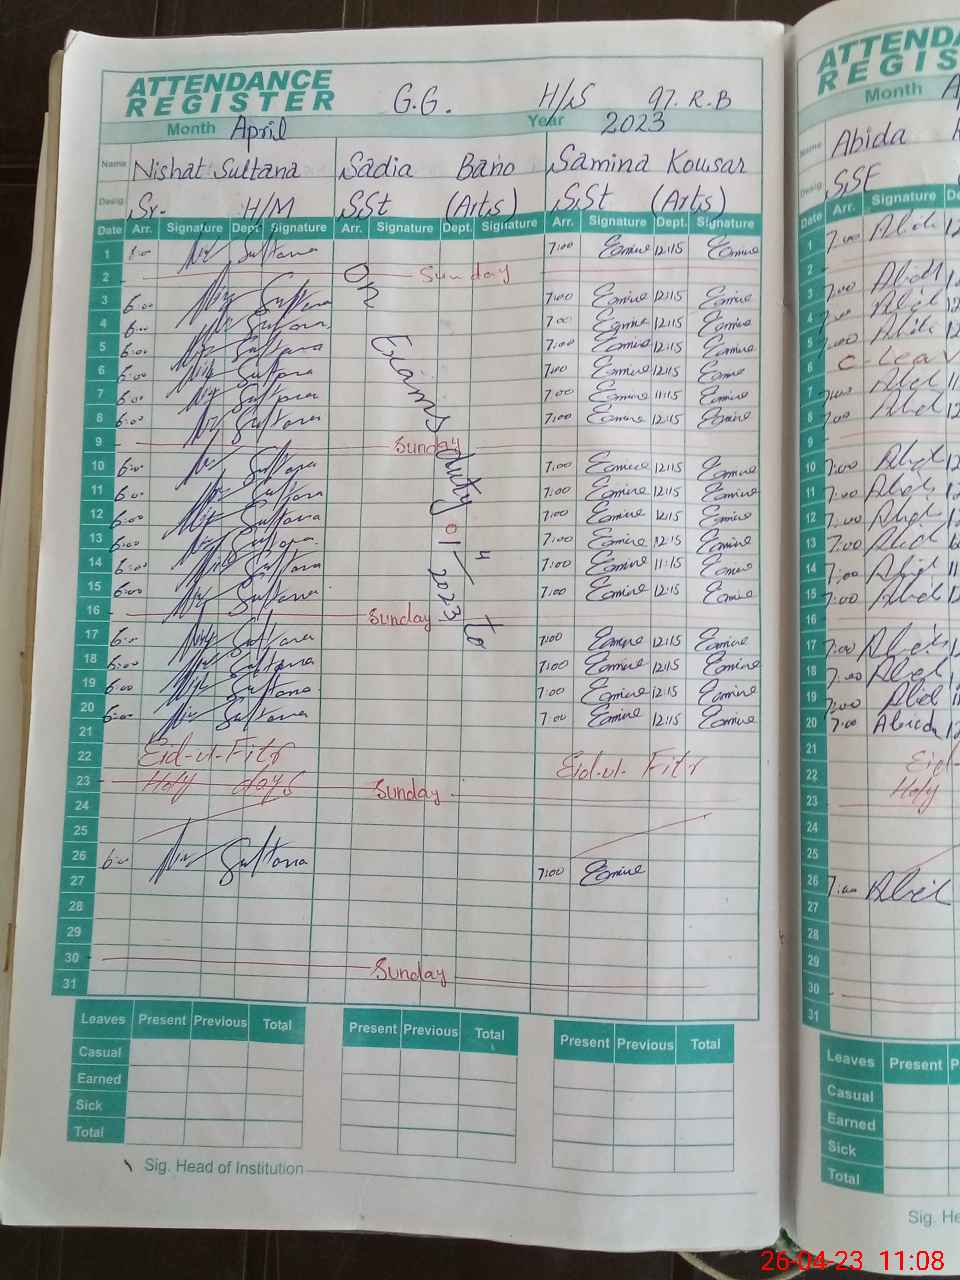 ATTENDANCE
REGISTER
G.G. H/S 97. R.B
Month April Year 2023
Name Nishat Sultana Sadia Bano Samina Kousar
Desig. Sr. H/M SSt (Arts) SSt (Arts)
Date Arr. Signature Dept. Signature Arr. Signature Dept. Signature Arr. Signature Dept. Signature
1 Sultana 7:00 12:15
2 Sunday
3 6:00 Sultana 7:00 12:15
4 6:00 Sultana 7:00 12:15
5 6:00 Sultana 7:00 12:15
6 6:00 Sultana 7:00 12:15
7 6:00 Sultana 7:00 11:15
8 6:00 Sultana 7:00 12:15
9 Sunday
10 6:00 Sultana 7:00 12:15
11 6:00 Sultana 7:00 12:15
12 6:00 Sultana 7:00 12:15
13 6:00 Sultana 7:00 12:15
14 6:00 Sultana 7:00 11:15
15 6:00 Sultana 7:00 12:15
16 Sunday
17 6:00 Sultana 7:00 12:15
18 6:00 Sultana 7:00 12:15
19 6:00 Sultana 7:00 12:15
20 6:00 Sultana 7:00 12:15
21
22 Eid-ul-Fitr Eid-ul-Fitr
23 Holy days Sunday
24
25
26 6:00 Sultana 7:00
27
28
29
30 Sunday
31
On Exams duty 01-4-2023 to
Leaves Present Previous Total Present Previous Total Present Previous Total
Casual
Earned
Sick
Total
Sig. Head of Institution
ATTENDA
REGIS
Month A
Name Abida
Desig. SST
Date Arr. Signature
1 7:00
2
3 7:00
4
5
6 C-Leav
7 7:00
8 7:00
9
10 7:00
11 7:00
12 7:00
13 7:00
14 7:00
15 7:00
16
17 7:00
18 7:00
19 7:00
20 7:00 Abida
21
22 Eid
23 Holy
24
25
26 7:00
27
28
29
30
31
Leaves Present
Casual
Earned
Sick
Total
Sig. He
26-04-23 11:08